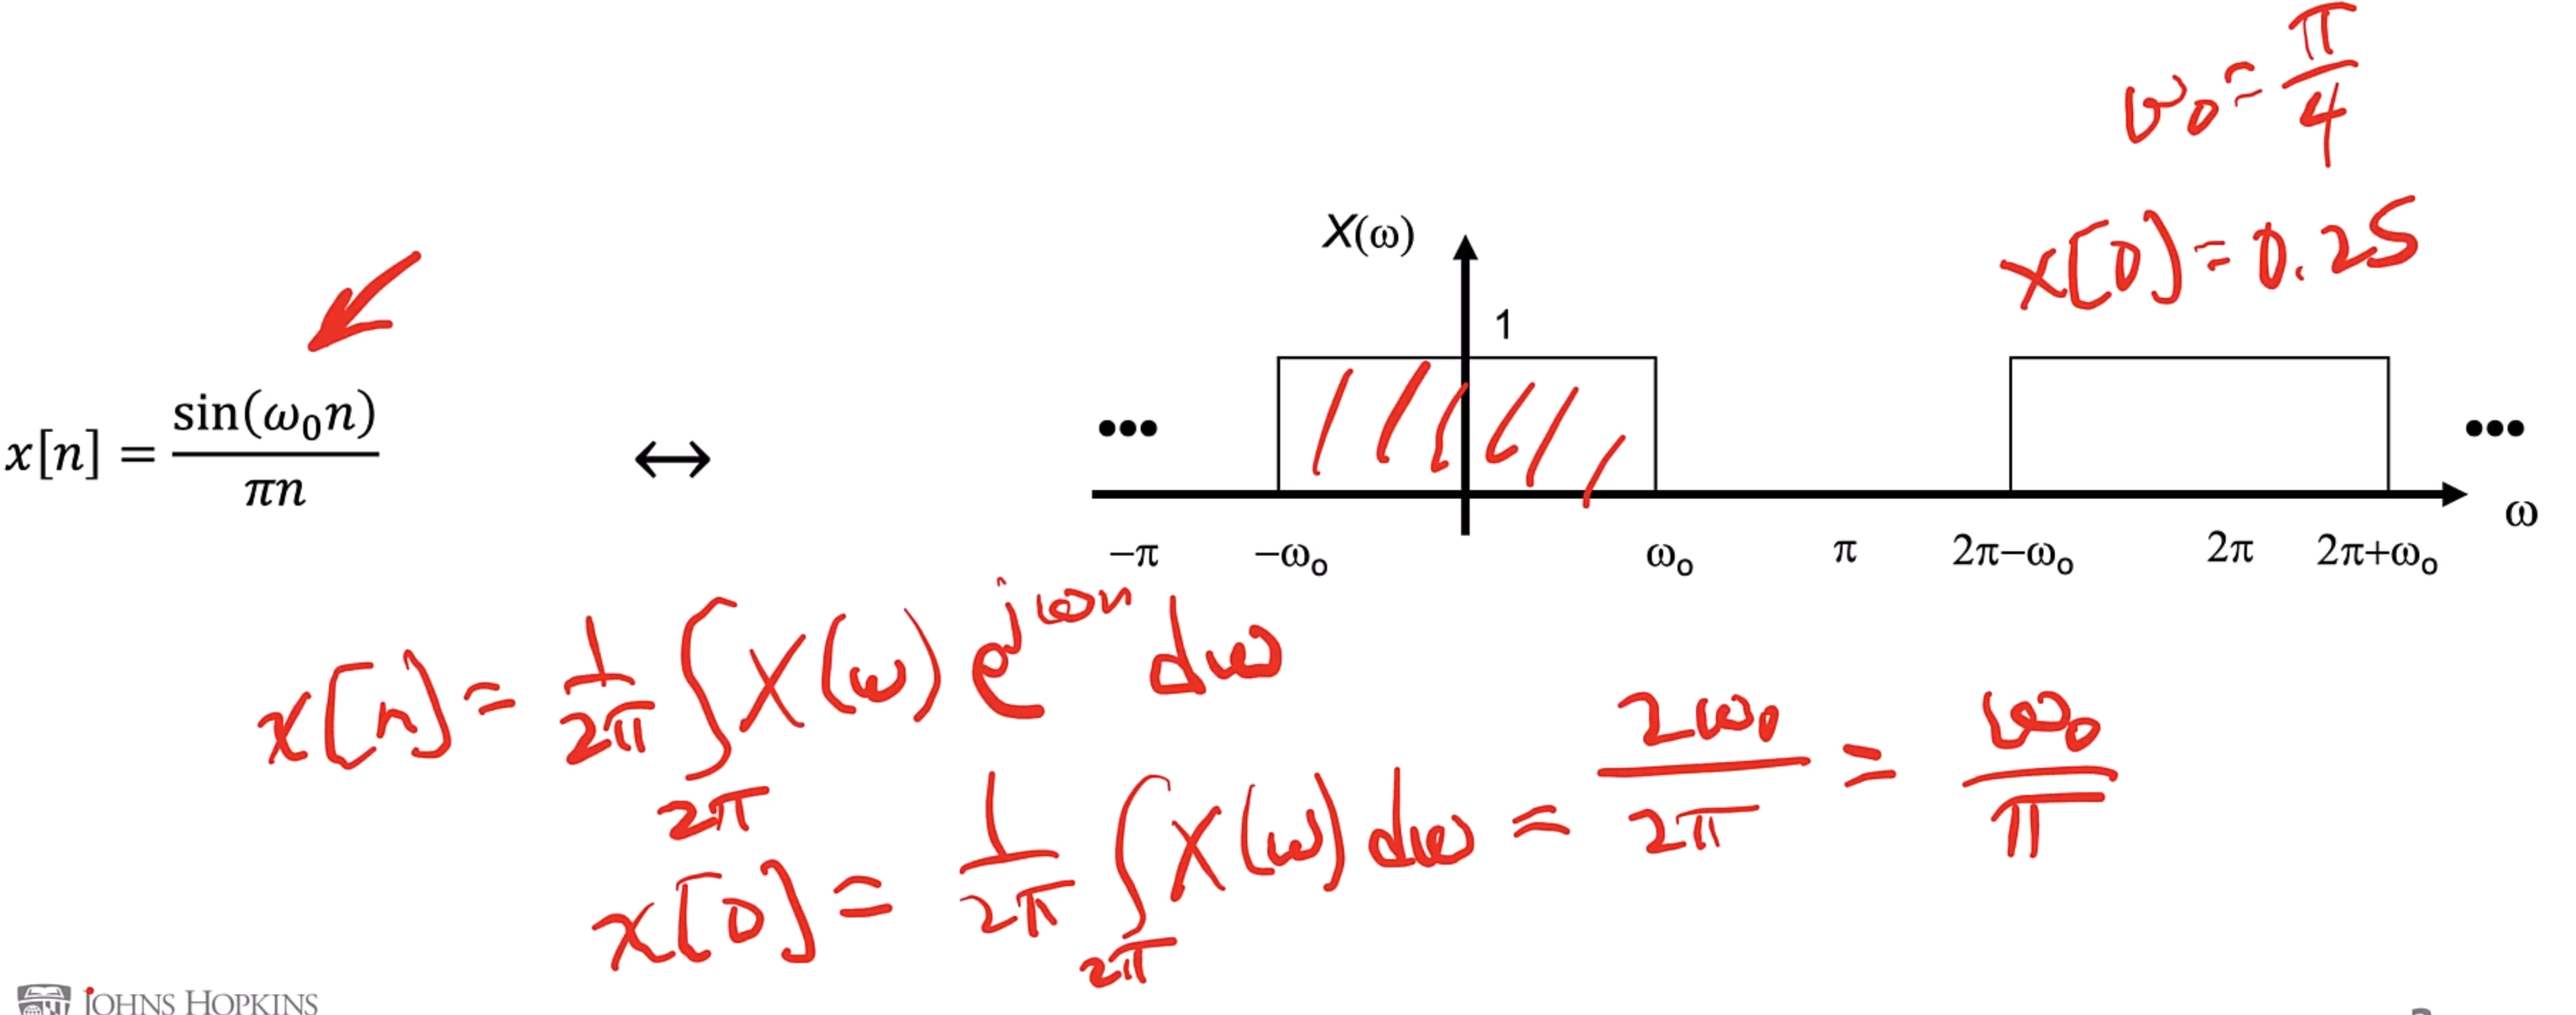 ω₀ = π/4
x[0] = 0.25
X(ω)
1
x[n] = sin(ω₀n)/πn ↔ ••• •••
ω
−π −ω₀ ω₀ π 2π−ω₀ 2π 2π+ω₀
x[n] = 1/2π ∫2π X(ω) e^jωn dω
x[0] = 1/2π ∫2π X(ω) dω = 2ω₀/2π = ω₀/π
JOHNS HOPKINS